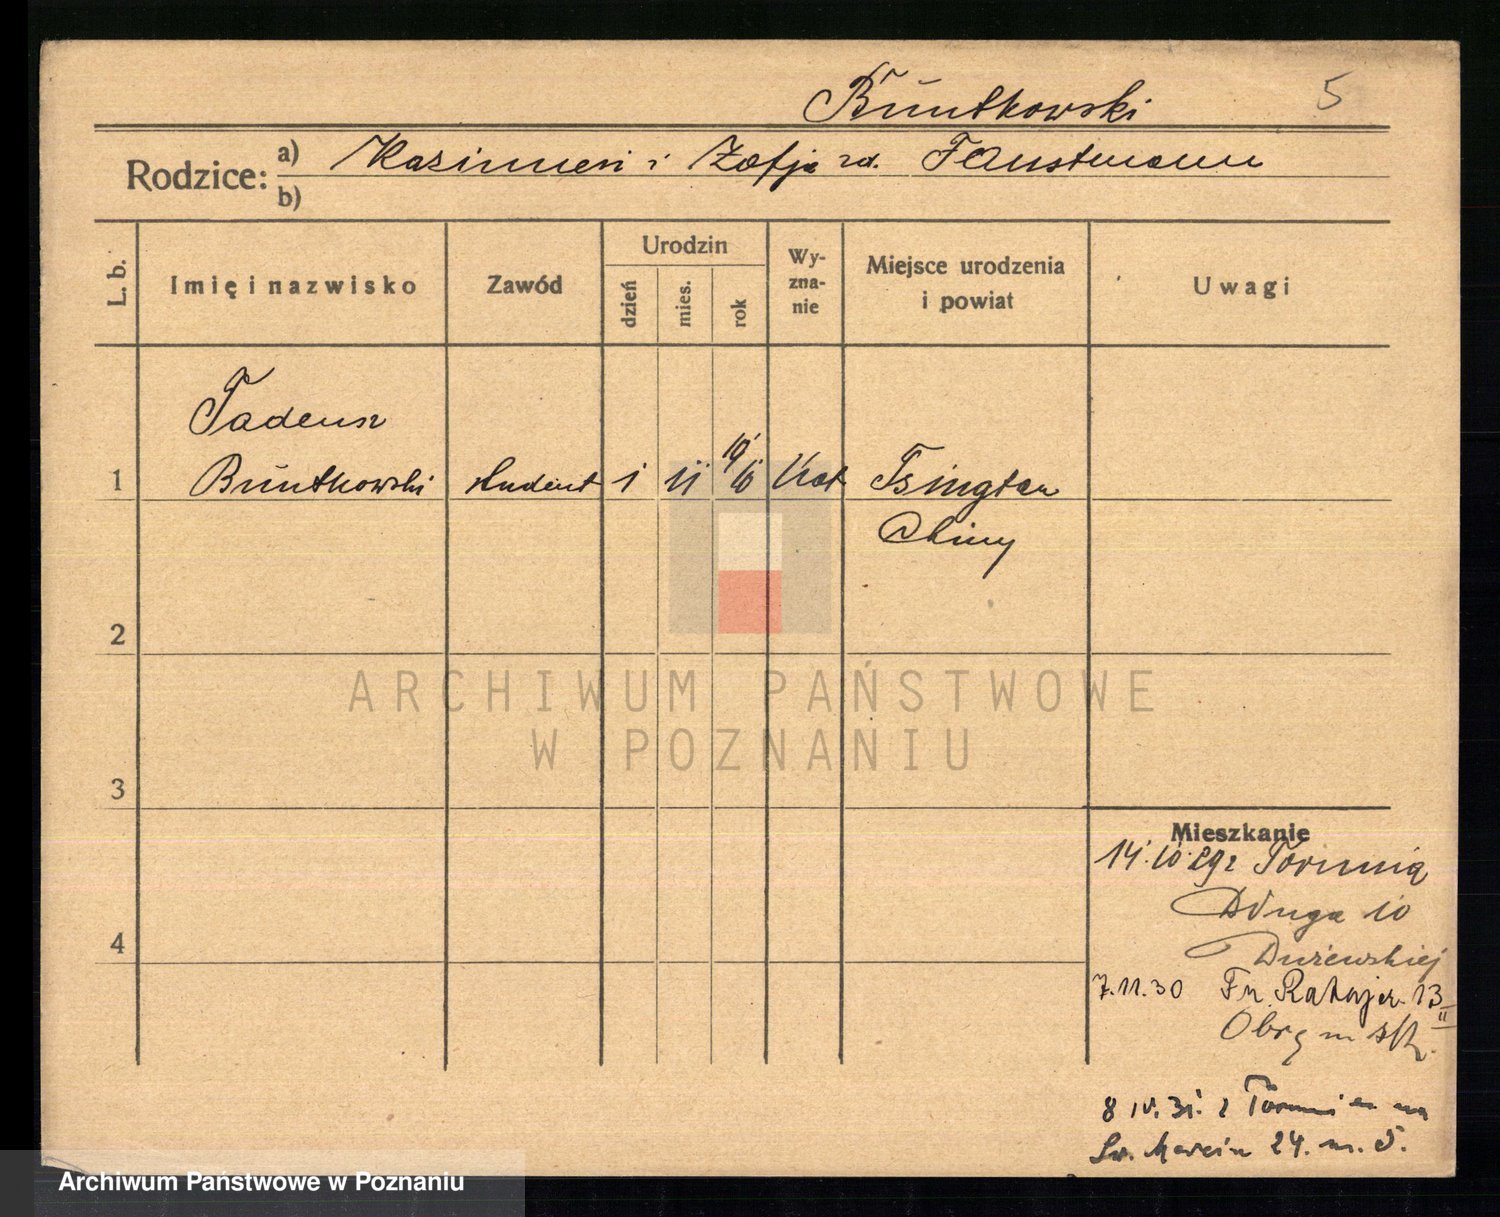 Buntkowski 5
Rodzice: a) Kazimierz i Zofja zd. Faustmann
b)
L. b. Imię i nazwisko Zawód Urodzin dzień mies. rok Wy-zna-nie Miejsce urodzenia i powiat Uwagi
Tadeusz
1 Buntkowski student 1 11 Kat Tsingtau
Chiny
2
ARCHIWUM PAŃSTWOWE
W POZNANIU
3
Mieszkanie
14.10.29 z Torunia
Długa 10
4
7.11.30 Fr. Ratajcz. 13
II
8 IV. 31. z Torunia na
Św. Marcin 24. m. 5.
Archiwum Państwowe w Poznaniu